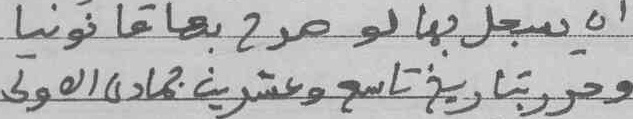 ان يسجل بها لو صرح بها قانونيا
وحرر بتاريخ تاسع وعشرين جمادى الاولى